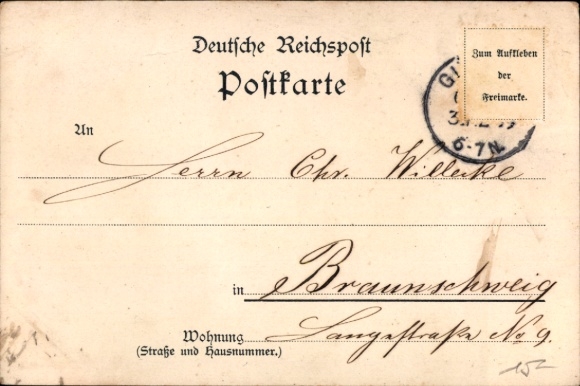 Deutsche Reichspost
Postkarte
Zum Aufkleben
der
Freimarke.
6-7N.
An
Herrn Chr. Willecke
in Braunschweig
Wohnung Langestraße No 9.
(Straße und Hausnummer.)
15-